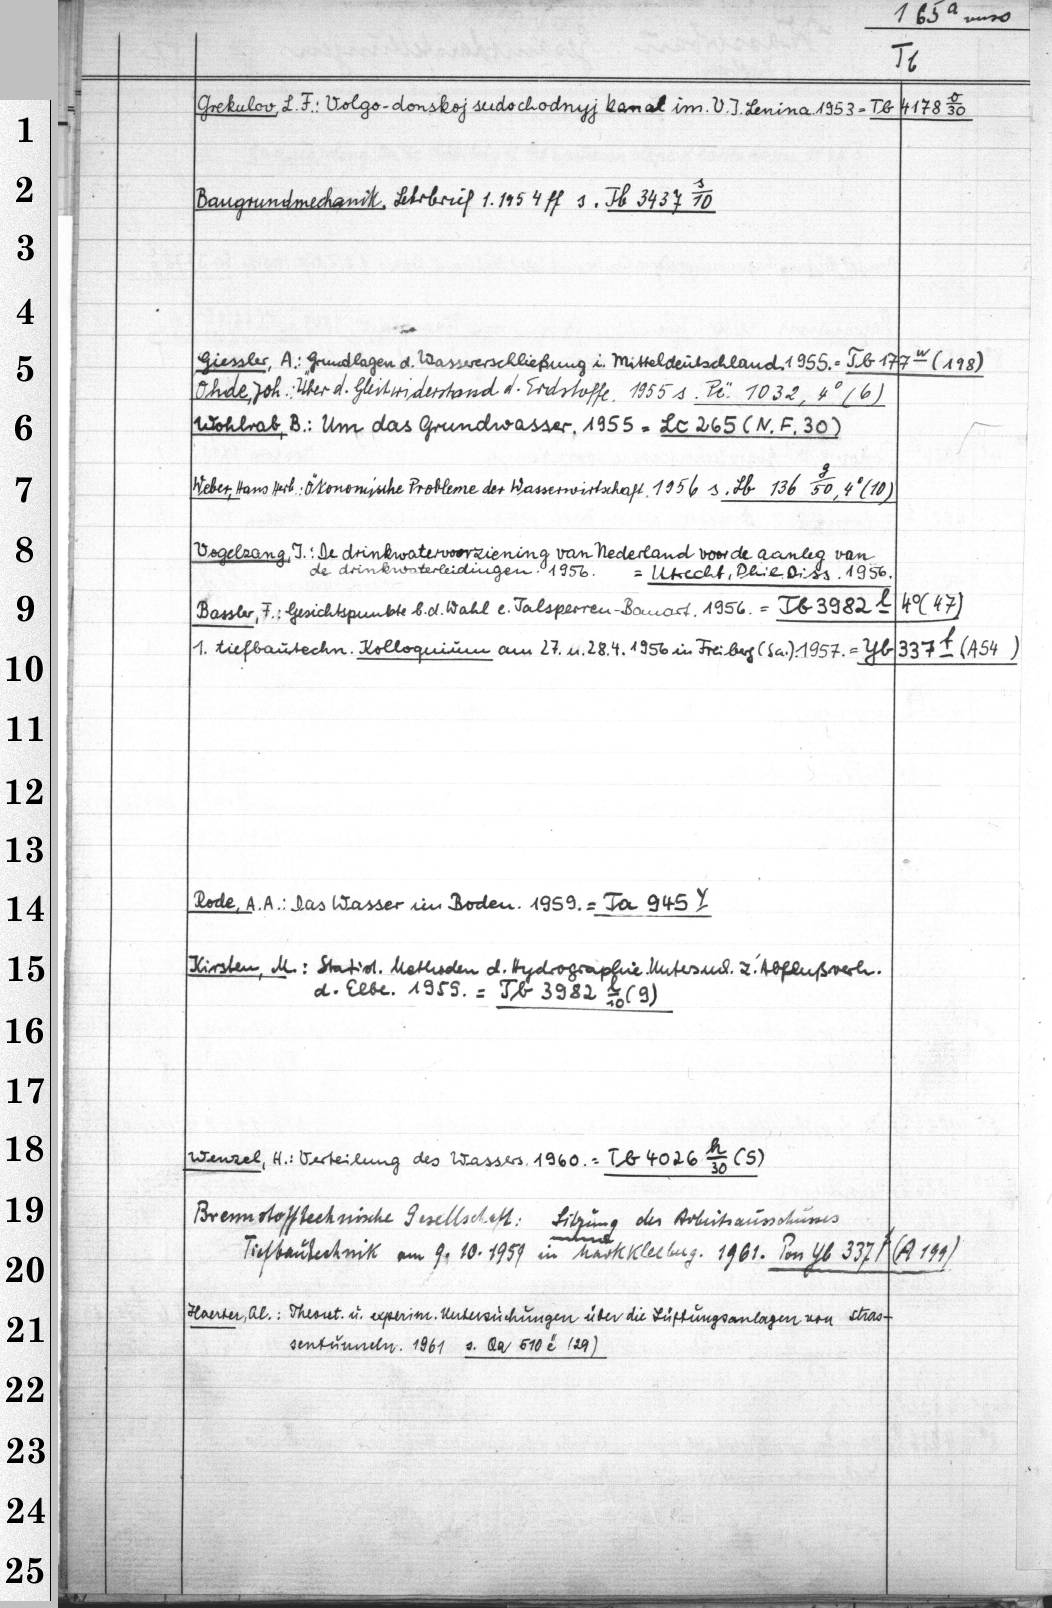 165a verso
Tb
1
Grekulov, L. F.: Volgo-donskoj sudochodnyj kanal im. V. I. Lenina. 1953 = Tb 4178 o/30
2
Baugrundmechanik. Lehrbrief 1. 1954 ff s. Tb 3437 s/10
3
4
5
Giessler, A.: Grundlagen d. Wassererschließung i. Mitteldeutschland. 1955. = Tb 177 w (198)
Ohde, Joh.: Über d. Gleitwiderstand d. Erdstoffe. 1955 s. Pi 1032, 4° (6)
6
Wohlrab, B.: Um das Grundwasser. 1955 = Lc 265 (N. F. 30)
7
Weber, Hans Herb.: Ökonomische Probleme der Wasserwirtschaft. 1956 s. Lb 136 g/50, 4° (10)
8
Vogelzang, I.: De drinkwatervoorziening van Nederland voor de aanleg van
de drinkwaterleidingen. 1956. = Utrecht, Phil. Diss. 1956.
9
Bassler, F.: Gesichtspunkte b. d. Wahl e. Talsperren-Bauart. 1956. = Tb 3982 h 4° (47)
10
1. tiefbautechn. Kolloquium am 27. u. 28.4. 1956 in Freiberg (Sa.). 1957. = Yb 337 f (A54 )
11
12
13
14
Rode, A. A.: Das Wasser im Boden. 1959. = Ta 945 y
15
Kirsten, M.: Statist. Methoden d. Hydrographie. Untersuch. z. Abflußverh.
d. Elbe. 1959. = Tb 3982 h/10 (9)
16
17
18
Wenzel, H.: Verteilung des Wassers. 1960. = Tb 4026 h/30 (5)
19
Brennstofftechnische Gesellschaft: Sitzung des Arbeitsausschusses
20
Tiefbautechnik am 9. 10. 1959 in Markkleeberg. 1961. Yb 337 f (A 199)
21
Haerter, Al.: Theoret. u. experim. Untersuchungen über die Lüftungsanlagen von Stras-
sentunneln. 1961 s. Qa 510 é (29)
22
23
24
25